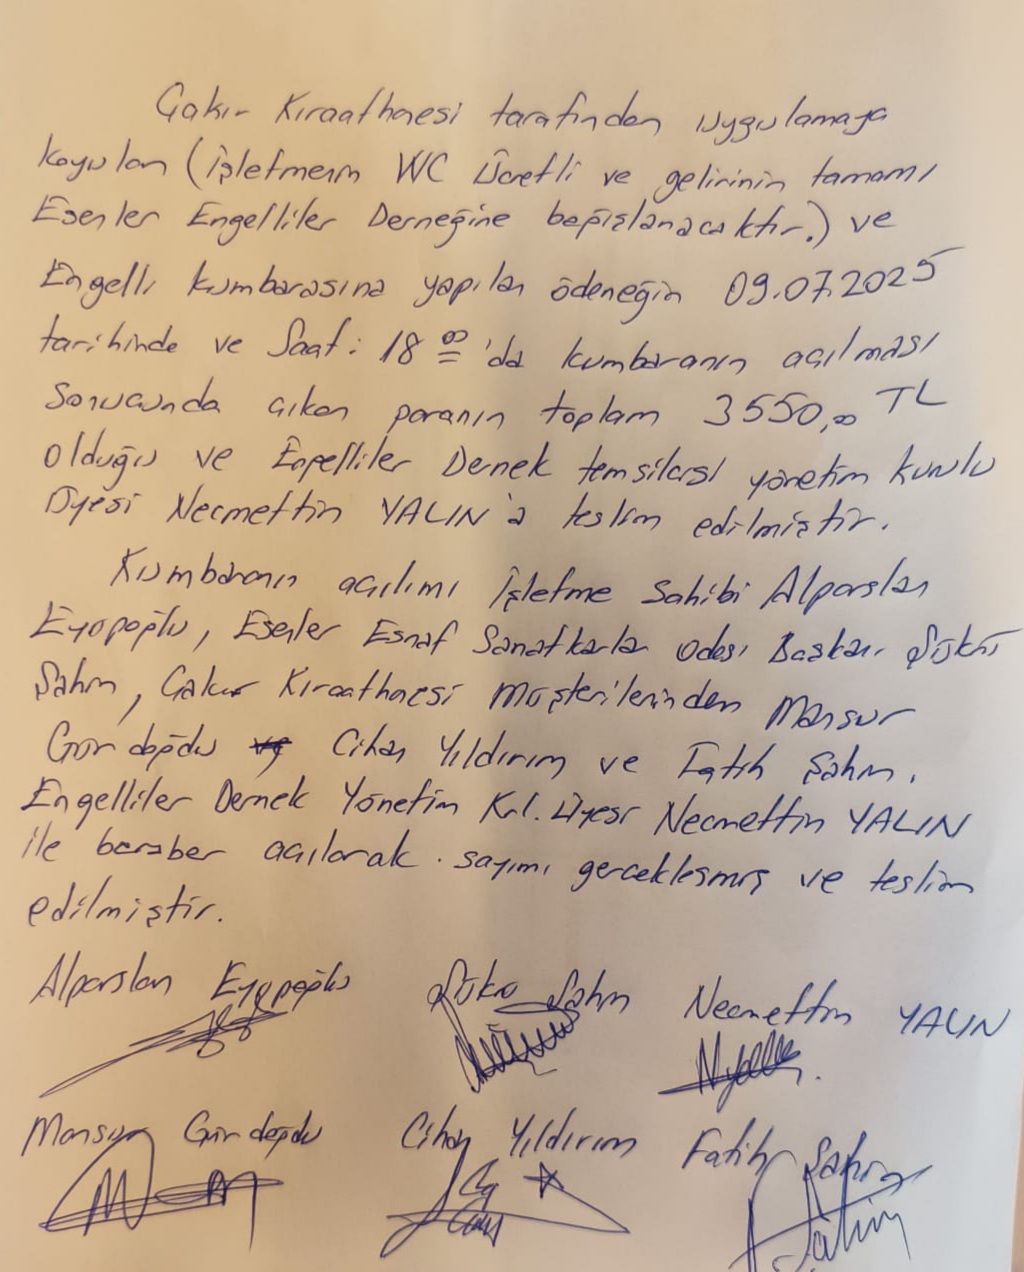 Çakır Kıraathaesi tarafından uygulamaya
koyulan (İşletmenin WC Ücretli ve gelirinin tamamı
Esenler Engelliler Derneğine bağışlanacaktır.) ve
Engelli kumbarasına yapılan ödeneğin 09.07.2025
tarihinde ve Saat: 18 00 'da kumbaranın açılması
sonucunda çıkan paranın toplam 3550,00 TL
olduğu ve Engelliler Dernek temsilcisi yönetim kurulu
Üyesi Necmettin YALIN'a teslim edilmiştir.
Kumbaranın açılımı İşletme Sahibi Alparslan
Eyüpoğlu, Esenler Esnaf Sanatkarlar odası Başkanı Şükrü
Şahin, Çakır Kıraathaesi Müşterilerinden Mansur
Gündoğdu Cihan Yıldırım ve Fatih Şahin.
Engelliler Dernek Yönetim Krl. Üyesi Necmettin YALIN
ile beraber açılarak. sayımı gerçekleşmiş ve teslim
edilmiştir.
Alparslan Eyüpoğlu Şükrü Şahin Necmettin YALIN
Mansur Gündoğdu Cihan Yıldırım Fatih Şahin